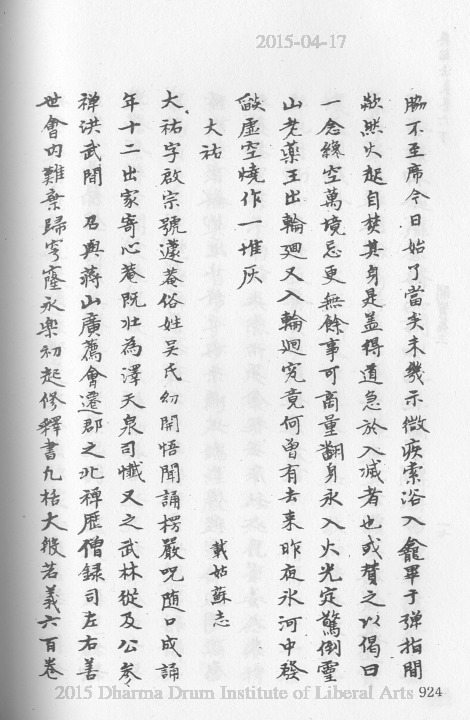 2015-04-17
脇不至席今日始了當矣未幾示微疾索浴入龕畢于彈指間
歘然火起自焚其身是盖得道急於入滅者也或賛之以偈曰
一念緣空萬境忘更無餘事可商量翻身永入火光定驚倒靈
山老藥王出輪迴又入輪迴究竟何曾有去来昨夜氷河中發
燄虚空燒作一堆灰
載姑蘇志
大祐
大祐字啟宗號蘧菴俗姓吳氏幼開悟聞誦楞嚴呪随口成誦
年十二出家寄心菴既壯為澤天泉司懺又之武林從及公叅
禅洪武間召與蔣山廣薦會遷郡之北禅歷僧録司左右善
世會内難棄歸穹窿永樂初起修釋書九帖大般若義六百卷
2015 Dharma Drum Institute of Liberal Arts
924